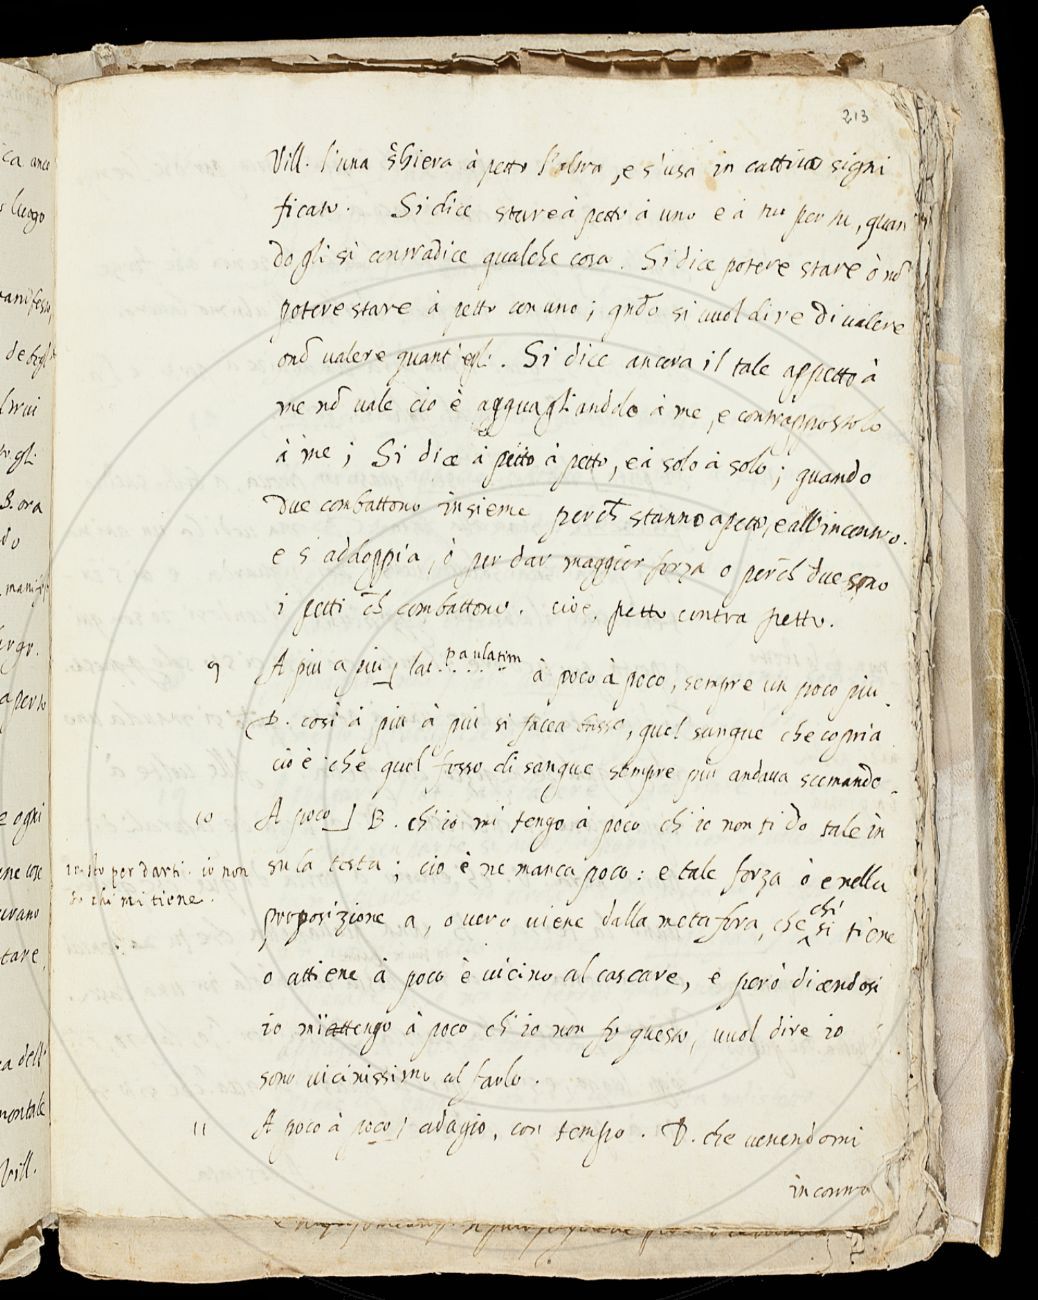 213
Vill. l'una schiera à petto l'altra, e s'usa in cattivo signi
ficato. Si dice stare à petto à uno e à tu per tu, quan
do gli si contradice qualche cosa. Si dice potere stare ò nō
potere stare à petto con uno; qndo si vuol dire di valere
o nō valere quant'egli. Si dice ancora il tale appetto à
me nō vale cio è agguagliandolo à me, e contrappostolo
à me; Si dice à petto à petto, e à solo à solo; quando
due combattono insieme perch̄ stanno a petto, e all'incontro.
e s'addoppia, ò per dar maggior forza o perch̄ due sono
i petti ch̄ combattono. cioè, petto contra petto.
9 A piu a piu] lat. paulatim à poco à poco, sempre un poco piu.
D. così à piu à piu si facea basso, quel sangue che copria
cio è che quel fosso di sangue sempre più andava scemando.
10 A poco] B. ch'io mi tengo à poco ch'io non ti do tale in
su la testa; cio è ne manca poco: e tale forza ò è nella
proposizione a, o vero viene dalla metafora, che chi si tiene
o attiene à poco è vicino al cascare, e però dicendosi
io mi attengo à poco ch'io non fo questo, vuol dire io
sono vicinissimo al farlo.
11 A poco à poco] adagio, con tempo. D. che venendomi
incontro
io sto per darti. io non
so chi mi tiene.
ca anco
luogo
lrui
gli
ora
do
a perto
e ogni
tare,
a dell'
montale
Vill.